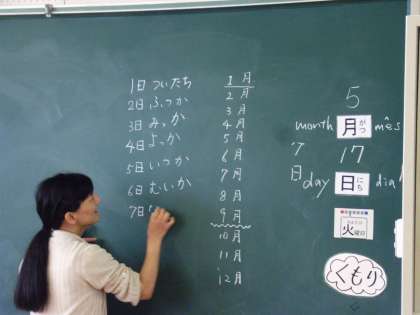 1日 ついたち
2日 ふつか
3日 みっか
4日 よっか
5日 いつか
6日 むいか
7日
1月
2月
3月
4月
5月
6月
7月
8月
9月
10月
11月
12月
5
month 月 がつ mês
17
日 day 日 にち dia
火曜日
くもり